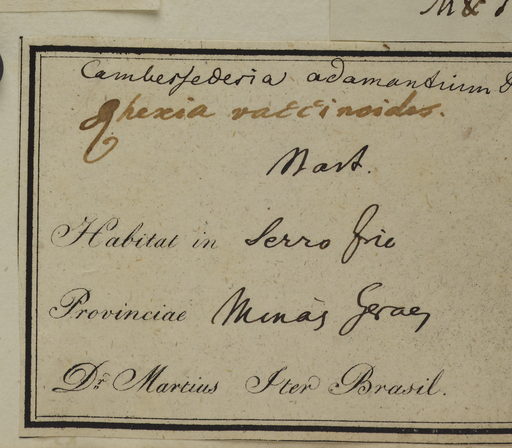 M & 
Cambessedesia adamantium D
Rhexia vaccinoides.
Mart.
Habitat in Serro frio
Provinciae Minas Geraes
Dr. Martius Iter Brasil.